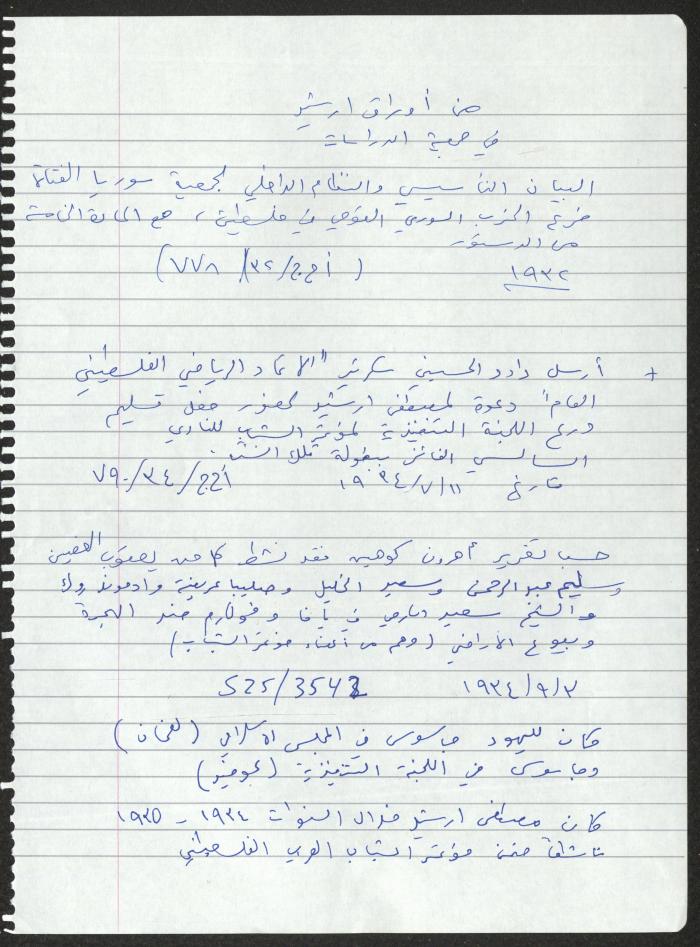 من أوراق ارشيد
في جمعية الدراسات
البيان التأسيسي والنظام الداخلي لجمعية سوريا الفتاة
فرع الحزب السوري القومي في فلسطين، مع المادة الخامسة
من الدستور
١٩٣٢ (أ ج ج/٣٢/ ٧٧٨)
+ أرسل داود الحسيني سكرتير "الاتحاد الرياضي الفلسطيني
العام" دعوة لمصطفى ارشيد لحضور حفل تسليم
درع اللجنة التنفيذية لمؤتمر الشباب للنادي
السالسي الفائز ببطولة تلك السنة.
تاريخ ١١/٧/١٩٣٤ أ ج ج/٣٤/٧٩٠
حسب تقرير أهرون كوهين فقد نشط كل من يعقوب الغصين
وسليم عبد الرحمن وسعيد الخليل وصليبا عريضة وادموند روك
والشيخ سعيد في يافا وطولكرم ضد الهجرة
وبيوع الأراضي (وهم من أعضاء مؤتمر الشباب)
٣/٩/١٩٣٤ S25/3542
كان لليهود جاسوس في المجلس الاسلامي ()
وجاسوس في اللجنة التنفيذية ()
كان مصطفى ارشيد خلال السنوات ١٩٣٤ - ١٩٣٥
ناشطا ضمن مؤتمر الشباب العربي الفلسطيني